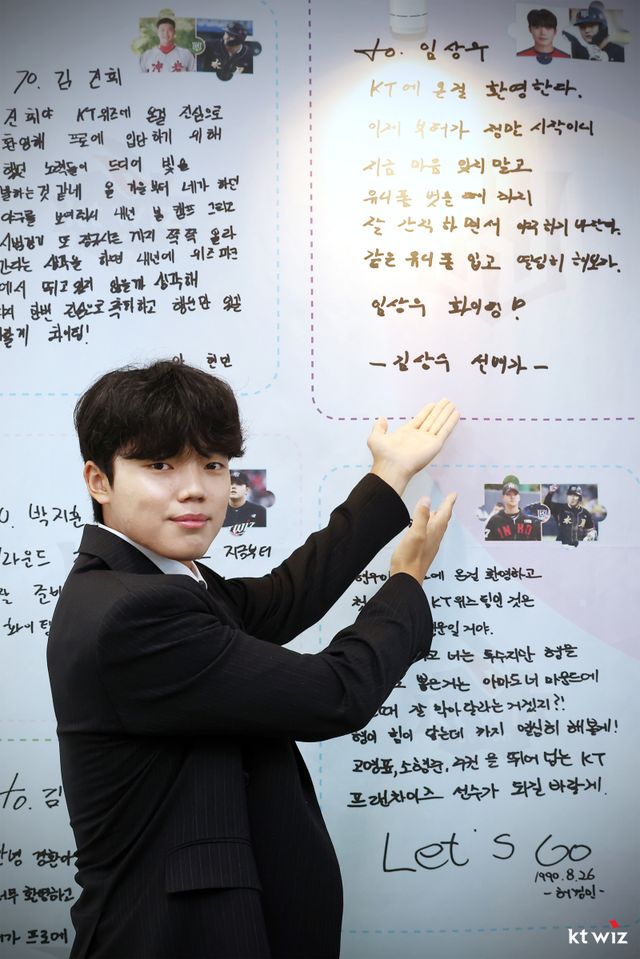 to. 김 건희
건희야 KT위즈에 온걸 진심으로
환영해 프로에 입단하기 위해
했던 노력들이 드디어 빛을
발하는것 같네 올 가을부터 네가 하던
야구를 보여줘서 내년 봄 캠프 그리고
시범경기 또 정규시즌까지 쭉 쭉 올라
간다는 생각을 하면 내년에 위즈파크
에서 뛰고 있지 않을까 생각해
다시 한번 진심으로 축하하고
화이팅!
안 현민
to. 임상우
KT에 온걸 환영한다.
이제 부터가 정말 시작이니
지금 마음 잊지 말고
유니폼 벗을 때 까지
잘 간직 하면서 야구하기 바란다.
같은 유니폼 입고 열심히 해보자.
임상우 화이팅!
- 김상수 선배가 -
박지훈
라운드 지금부터
준비
화이팅
온걸 환영하고
KT위즈팀원 것은
일거야.
너는 투수지만 형을
뽑은거는 아마도 너 마운드에
때 잘 막아달라는 거겠지?!
형이 힘이 닿는데 까지 열심히 해볼게!
고영표, 소형준, 주권 을 뛰어 넘는 KT
프랜차이즈 선수가 되길 바랄게.
Let's Go
1990.8.26
- 허경민 -
to. 김
안녕 경환아
너무 환영하고
프로에
kt wiz